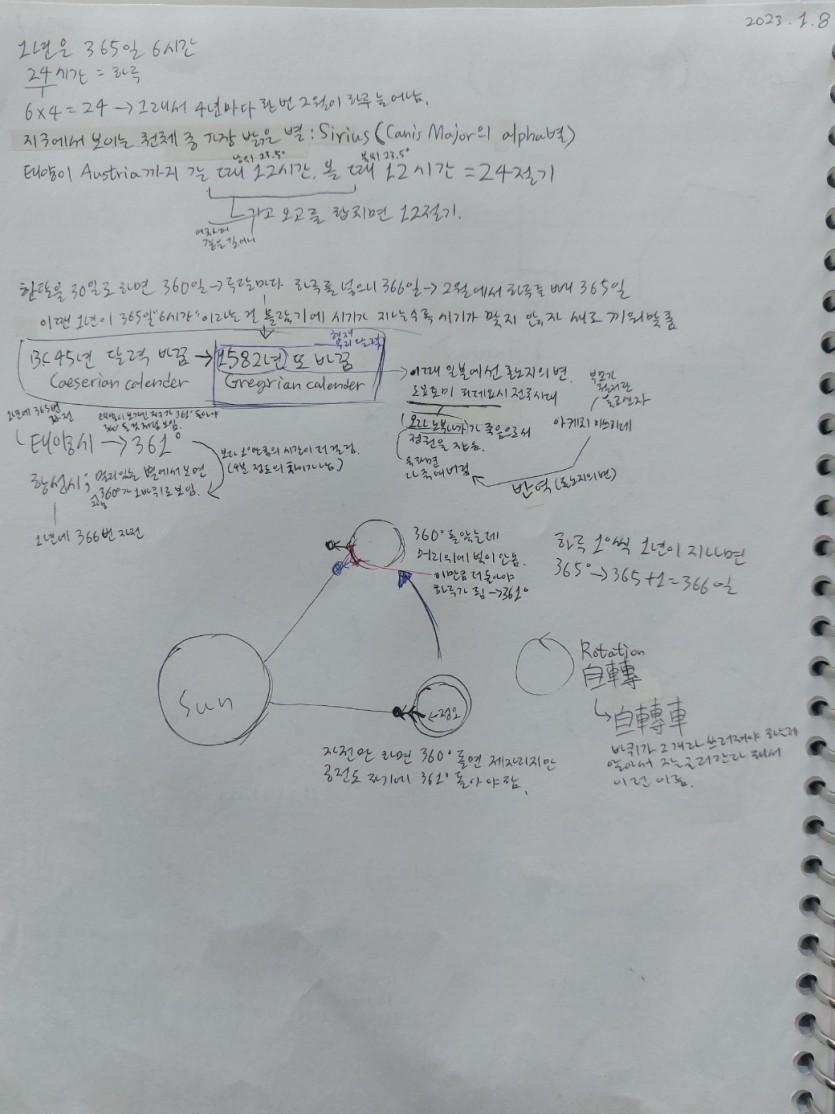 2023.1.8
1년은 365일 6시간
24시간 = 하루
6x4=24 → 그래서 4년마다 한번 2월이 하루 늘어남.
지구에서 보이는 천체 중 가장 밝은 별 : Sirius (Canis Major의 alpha별)
남위 23.5° 북위 23.5°
태양이 Austria까지 갈 때 12시간, 올 때 12시간 = 24절기
가고 오고를 합치면 12절기.
어차피 같은 길이니
한달을 30일로 하면 360일 → 두달마다 하루를 넣으니 366일 → 2월에서 하루를 빼 365일
이땐 1년이 365일 "6시간"이라는 걸 몰랐기에 시기가 지날수록 시기가 맞지 않자 새로 끼워맞춤
현재 우리 달력
BC 45년 달력 바꿈 → 1582년 또 바꿈
Caeserian calender Gregrian calender
이때 일본에선 혼노지의 변.
도요토미 히데요시 전국시대
오다 노부나가가 죽음으로서
정권을 잡음.
아케치 미쓰히데
반역 (혼노지의 변)
1년에 365번 자전
태양시 → 361°
보다 1°만큼의 시간이 더 걸림.
(4분 정도의 차이가 남)
항성시; 멀리있는 별에서 보면
360°가 1바퀴로 보임.
1년에 366번 자전
360° 돌았는데
머리위에 빛이 안옴.
이만큼 더 돌아야
하루가 됨 → 361°
하루 1°씩 1년이 지나면
365° → 365+1=366일
Sun
정오
Rotation
自轉
自轉車
바퀴가 2개라 쓰러져야 하는데
알아서 굴러간다 해서
이런 이름.
자전만 하면 360° 돌면 제자리지만
공전도 하기에 361° 돌아야함.